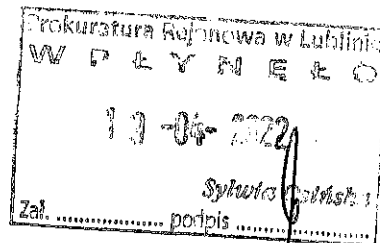 Prokuratura Rejonowa w Lublinie
WPŁYNĘŁO
-04- 2022
Sylwia
Zał. .................. podpis ..................